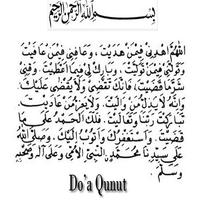 بِسْمِ اللهِ الرَّحْمٰنِ الرَّحِيْمِ
اَللّٰهُمَّ اهْدِنِيْ فِيْمَنْ هَدَيْتَ، وَعَافِنِيْ فِيْمَنْ عَافَيْتَ
وَتَوَلَّنِيْ فِيْمَنْ تَوَلَّيْتَ، وَبَارِكْ لِيْ فِيْمَا اَعْطَيْتَ، وَقِنِيْ
شَرَّمَا قَضَيْتَ، فَاِنَّكَ تَقْضِيْ وَلَا يُقْضٰى عَلَيْكَ
وَاِنَّهُ لَا يَذِلُّ مَنْ وَالَيْتَ، وَلَا يَعِزُّ مَنْ عَادَيْتَ
تَبَارَكْتَ رَبَّنَا وَتَعَالَيْتَ، فَلَكَ الْحَمْدُ عَلٰى مَا
قَضَيْتَ، وَاَسْتَغْفِرُكَ وَاَتُوْبُ اِلَيْكَ، وَصَلَّى اللهُ
عَلٰى سَيِّدِنَا مُحَمَّدٍ النَّبِيِّ الْاُمِّيِّ وَعَلٰى اٰلِهِ وَصَحْبِهِ
وَسَلَّمَ.
Do'a Qunut